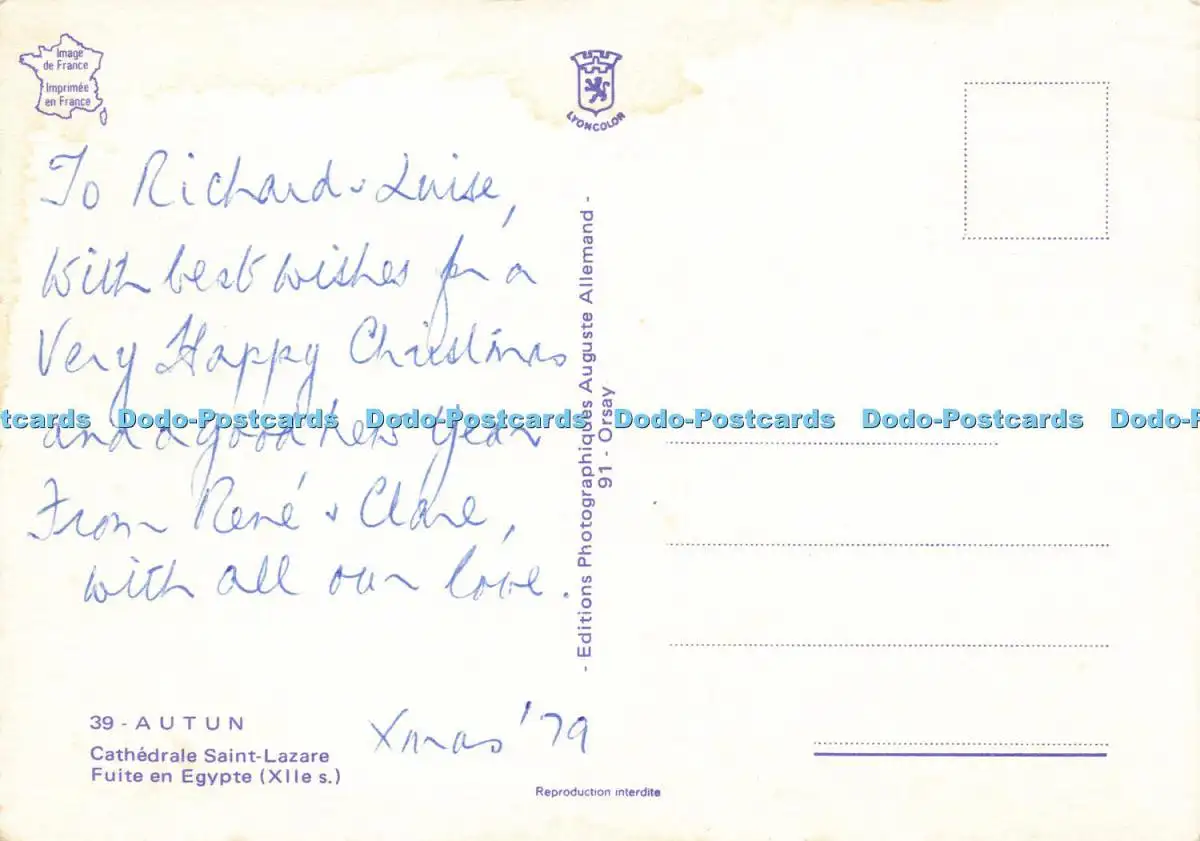 Image
de France
Imprimée
en France
LYONCOLOR
To Richard & Luise,
With best wishes for a
Very Happy Christmas
and a good New Year
From René & Clare,
with all our love.
Xmas '79
- Editions Photographiques Auguste Allemand -
91 - Orsay
39 - AUTUN
Cathédrale Saint-Lazare
Fuite en Egypte (XIIe s.)
Reproduction interdite
ostcards Dodo-Postcards Dodo-Postcards Dodo-Postcards Dodo-Postcards Dodo-P